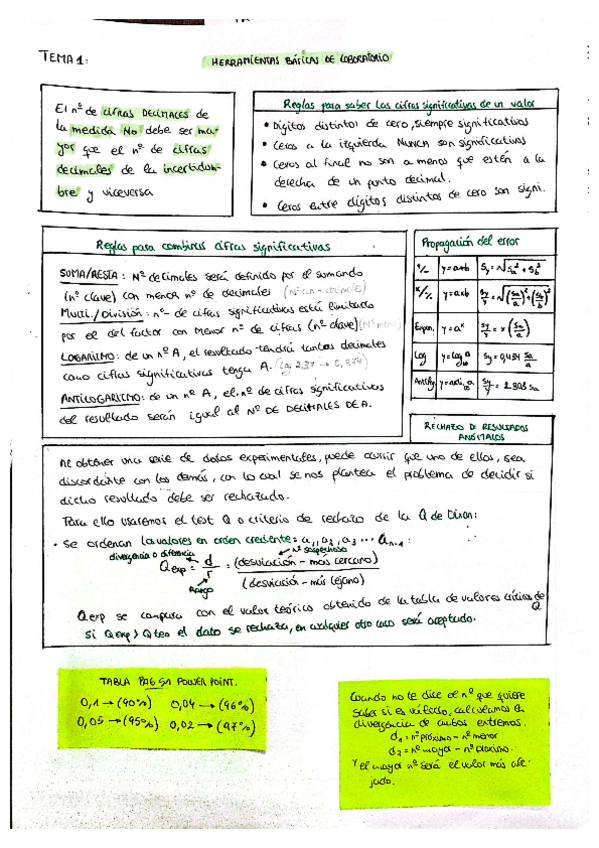 TEMA 1:
HERRAMIENTAS BÁSICAS DE LABORATORIO
El nº de cifras DECIMALES de
la medida No debe ser ma-
yor que el nº de cifras
decimales de la incertidum-
bre y viceversa
Reglas para saber las cifras significativas de un valor
• Dígitos distintos de cero, siempre significativos
• Ceros a la izquierda NUNCA son significativos
• Ceros al final no son a menos que estén a la
derecha de un punto decimal.
• Ceros entre dígitos distintos de cero son signi.
Reglas para combinar cifras significativas
SUMA/RESTA: Nº decimales será definido por el sumando
(nº clave) con menor nº de decimales
Multi./División: nº de cifras significativas está limitado
por el del factor con menor nº de cifras (nº clave)
LOGARITMO: de un nº A, el resultado tendrá tantos decimales
como cifras significativas tenga A.
ANTILOGARITMO: de un nº A, el nº de cifras significativas
del resultado serán igual al Nº DE DECIMALES DE A.
Propagación del error
+/- y=a+b Sy=√Sa²+Sb²
x/% y=axb Sy/y=√(Sa/a)²+(Sb/b)²
Expon. y=aˣ Sy/y=x(Sa/a)
Log y=log a Sy=0,434 Sa/a
Antilog Sy/y=2.303 Sa
RECHAZO DE RESULTADOS
ANÓMALOS
Al obtener una serie de datos experimentales, puede ocurrir que uno de ellos, sea
discordante con los demás, con lo cual se nos plantea el problema de decidir si
dicho resultado debe ser rechazado.
Para ello usaremos el test Q o criterio de rechazo de la Q de Dixon:
• Se ordenan la valores en orden creciente: a₁, a₂, a₃ ... aₙ₋₁.
divergencia o diferencia
Nº sospechoso
Qexp = d/r = (desviación - más cercano)/(desviación - más lejano)
Rango
Qexp se compara con el valor teórico obtenido de la tabla de valores críticos de Q
Si Qexp > Qteo el dato se rechaza, en cualquier otro caso será aceptado.
TABLA PAG 51 POWER POINT.
0,1 → (90%) 0,04 → (96%)
0,05 → (95%) 0,02 → (97%)
Cuando no te dice el nº que quiere
saber si es válido, calculamos la
divergencia de ambos extremos.
d₁ = nº próximo - nº menor
d₂ = nº mayor - nº próximo.
Y el mayor nº será el valor más ale-
jado.